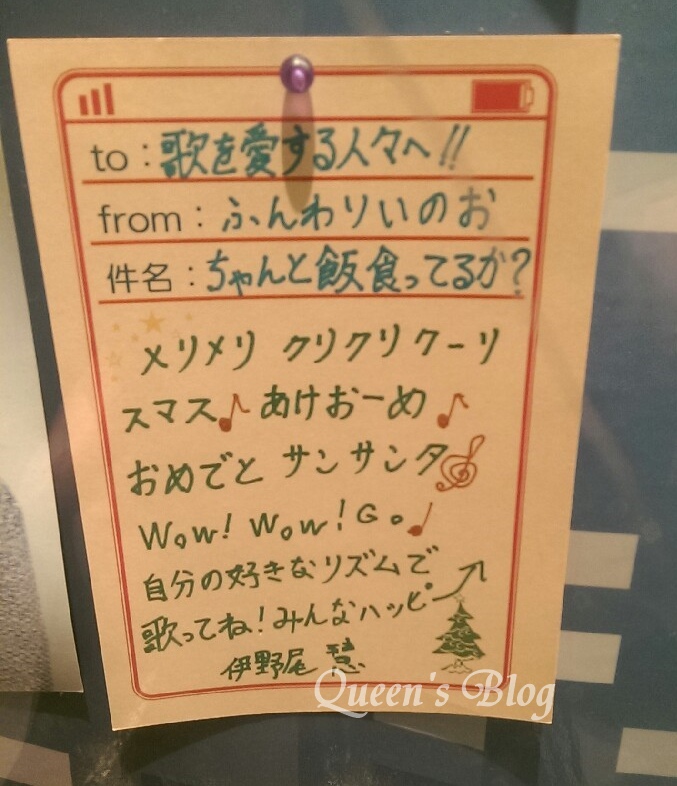 to：歌を愛する人々へ!!
from：ふんわりいのお
件名：ちゃんと飯食ってるか?
メリメリ クリクリクーリ
スマス♪あけおーめ♪
おめでと サンサンタ
Wow! Wow! Go♩
自分の好きなリズムで
歌ってね!みんなハッピー
伊野尾 慧
Queen's Blog